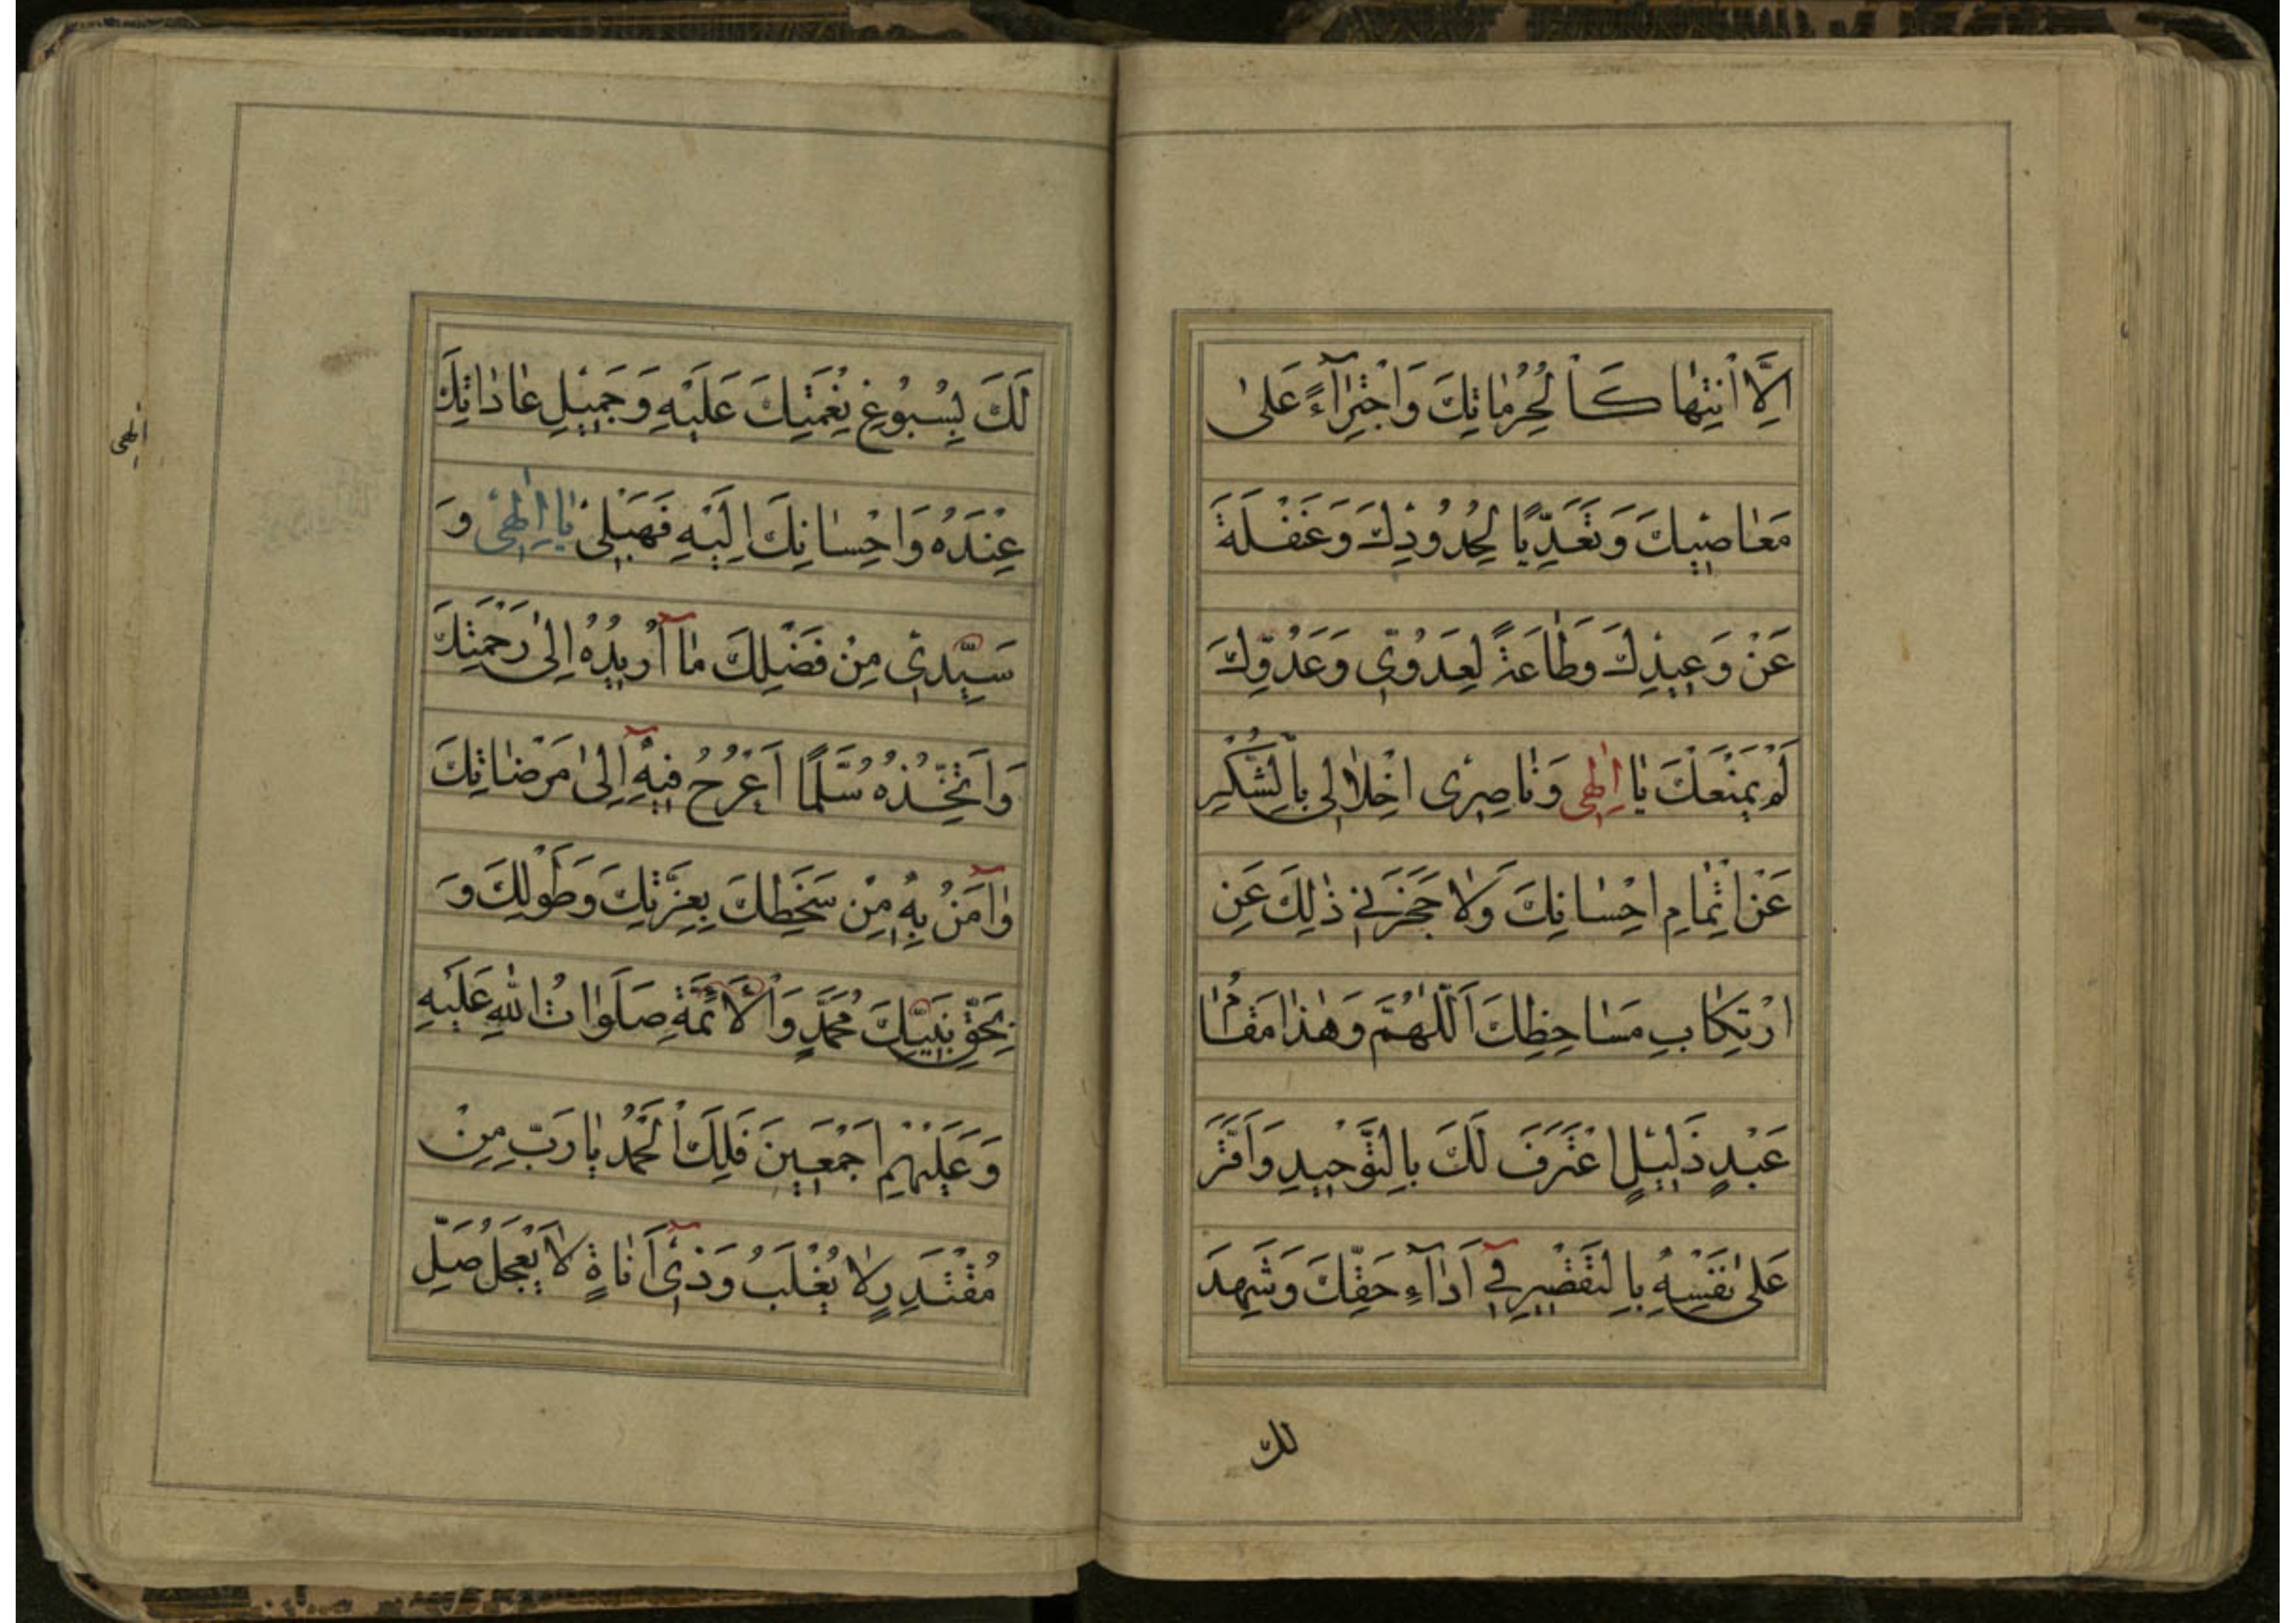 اِلَّا انْتِهاكَاً لِحُرُماتِكَ وَاجْتِرَآءً عَلىٰ
مَعاصيكَ وَتَعَدِّيًا لِحُدُودِكَ وَغَفْلَةً
عَنْ وَعيدِكَ وَطاعَةً لِعَدُوّي وَعَدُوِّكَ
لَمْ يَمْنَعْكَ يا اِلٰهي وَناصِري اِخْلالي بِالشُّكْرِ
عَنْ اِتْمامِ اِحْسانِكَ وَلا حَجَزَني ذٰلِكَ عَنِ
ارْتِكابِ مَساخِطِكَ اَللّٰهُمَّ وَهٰذا مَقامُ
عَبْدٍ ذَليلٍ اعْتَرَفَ لَكَ بِالتَّوْحيدِ وَاَقَرَّ
عَلىٰ نَفْسِهِ بِالتَّقْصيرِ في اَدآءِ حَقِّكَ وَشَهِدَ
لك
لَكَ بِسُبُوغِ نِعْمَتِكَ عَلَيْهِ وَجَميلِ عاداتِكَ
عِنْدَهُ وَاِحْسانِكَ اِلَيْهِ فَهَبْ لي يا اِلٰهي وَ
سَيِّدي مِنْ فَضْلِكَ مآ اُريدُهُ اِلىٰ رَحْمَتِكَ
وَاَتَّخِذُهُ سُلَّمًا اَعْرُجُ فيهِ اِلىٰ مَرْضاتِكَ
وَآمَنُ بِهِ مِنْ سَخَطِكَ بِعِزَّتِكَ وَطَوْلِكَ وَ
بِحَقِّ نَبِيِّكَ مُحَمَّدٍ وَالْاَئِمَّةِ صَلَواتُ اللهِ عَلَيْهِ
وَعَلَيْهِمْ اَجْمَعينَ فَلَكَ الْحَمْدُ يا رَبِّ مِنْ
مُقْتَدِرٍ لا يُغْلَبُ وَذي اَناةٍ لا يَعْجَلُ صَلِّ
الهي